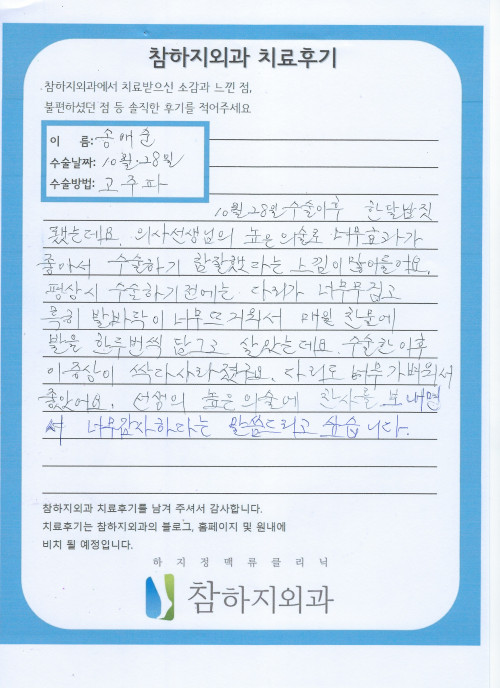 참하지외과 치료후기
참하지외과에서 치료받으신 소감과 느낀 점,
불편하셨던 점 등 솔직한 후기를 적어주세요
이 름: 송애순
수술날짜: 10월.28일
수술방법: 고주파
10월 28일 수술이후 한달남짓
됐는데요. 의사선생님의 높은의술로 너무효과가
좋아서 수술하기 참잘했다라는 느낌이 많이들어요.
평상시 수술하기전에는 다리가 너무무겁고
특히 발바닥이 너무뜨거워서 매일 찬물에
발을 한두번씩 담그고 살았는데요. 수술한이후
이증상이 싹다사라졌구요. 다리도 너무가벼워서
좋았어요. 선생의 높은의술에 찬사를 보내면
서 너무감사하다는 말씀드리고 싶습니다.
참하지외과 치료후기를 남겨 주셔서 감사합니다.
치료후기는 참하지외과의 블로그, 홈페이지 및 원내에
비치 될 예정입니다.
하지정맥류클리닉
참하지외과